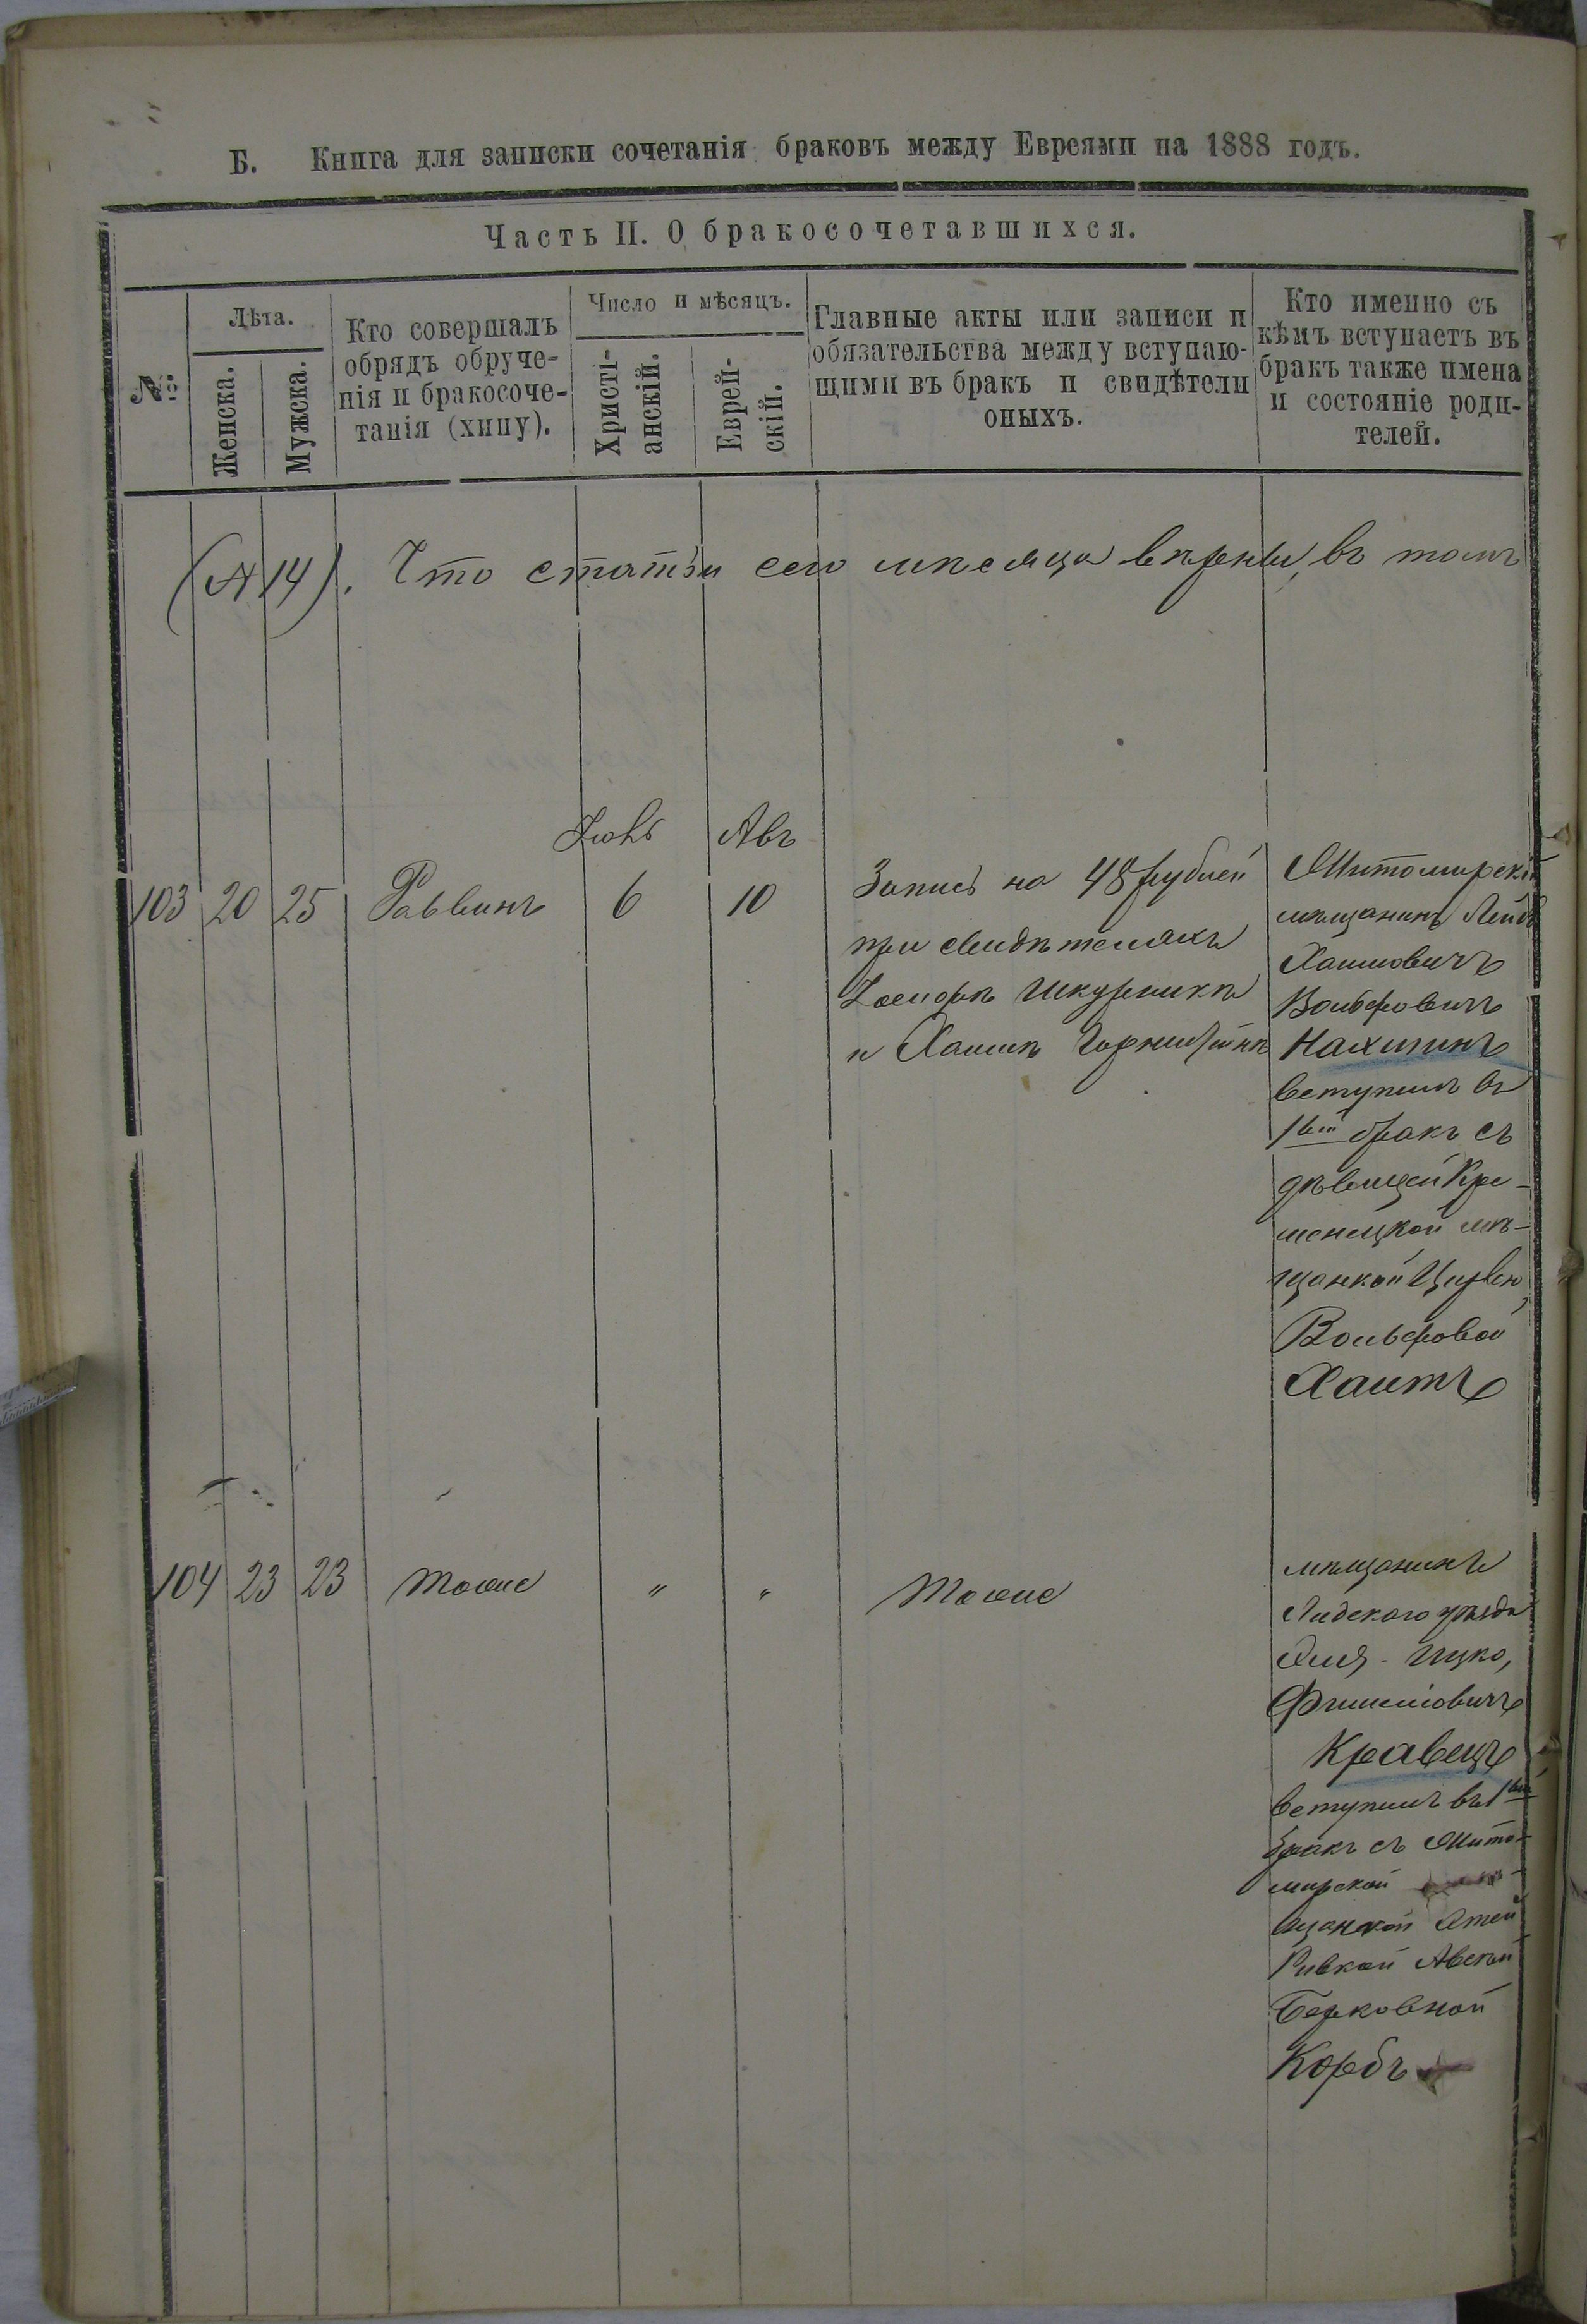 Б. Книга для записки сочетанія браковъ между Евреями на 1888 годъ.
Часть II. О бракосочетавшихся.
№
Лѣта.
Женска.
Мужска.
Кто совершалъ
обрядъ обруче-
нія и бракосоче-
танія (хипу).
Число и мѣсяцъ.
Христі-
анскій.
Еврей-
скій.
Главные акты или записи и
обязательства между вступаю-
щими въ бракъ и свидѣтели
оныхъ.
Кто именно съ
кѣмъ вступаетъ въ
бракъ также имена
и состояніе роди-
телей.
(№ 14). Что статьи сего мѣсяца вѣрны, въ томъ
Авъ
103 20 25 Раввинъ 6 10
Запись на 48 рублей
при свидѣтеляхъ
Шкурникъ
и Хаимъ
Житомирскій
мѣщанинъ Лейба
Хаимовичъ
Вольфовичъ
Нахманъ
вступилъ въ
1вый бракъ съ
дѣвицей Кре-
менецкой мѣ-
щанкой
Вольфовой
Хаитъ
104 23 23 тоже " " тоже
мѣщанинъ
Лидскаго уѣзда
Ицко,
Фишелевичъ
Кравецъ
вступилъ въ 1вый
бракъ съ Жито-
мирской
щанкой
Ривкой
Берковной
Корбъ